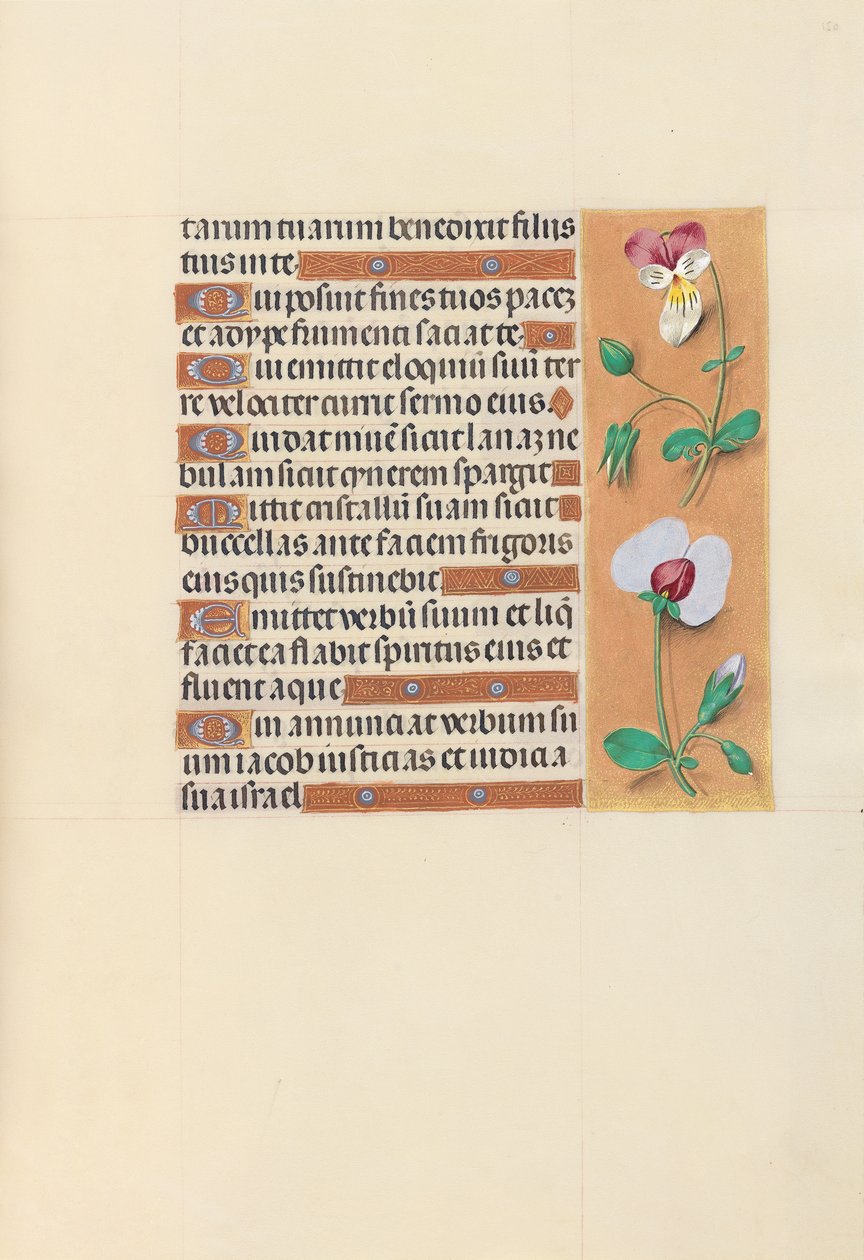 150
tarum tuarum benedixit filiis
tuis in te.
Qui posuit fines tuos pacez
et adype frumenti saciat te.
Qui emittit eloquiũ suũ ter
re velociter currit sermo eius.
Qui dat nivẽ sicut lanaz ne
bulam sicut cynerem spargit
Mittit cristallũ suam sicut
buccellas ante faciem frigoris
eius quis sustinebit.
Emittet verbũ suum et liq̃
faciet ea flabit spiritus eius et
fluent aque
Qui annunciat verbum su
um iacob iusticias et iudicia
sua israel.